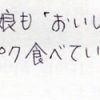 娘も「おいし
パク食べてい